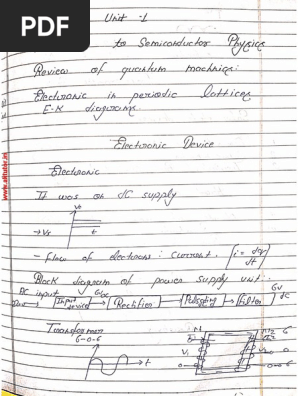 PDF
Unit - 1
to Semiconductor Physics
Review of quantum machnics:
Electronic in periodic lattices
E-K diagrams
Electronic Device
Electronic
It was on DC supply
V₀
→ V₀
t
- Flow of electrons: current. [i = dq/dt]
Block diagram of power supply unit:-
DC input
6V
Input device → Rectifier → Pulsating → Filter
dc
Transformer
6-0-6
→ t
V₁
www.aktutor.in